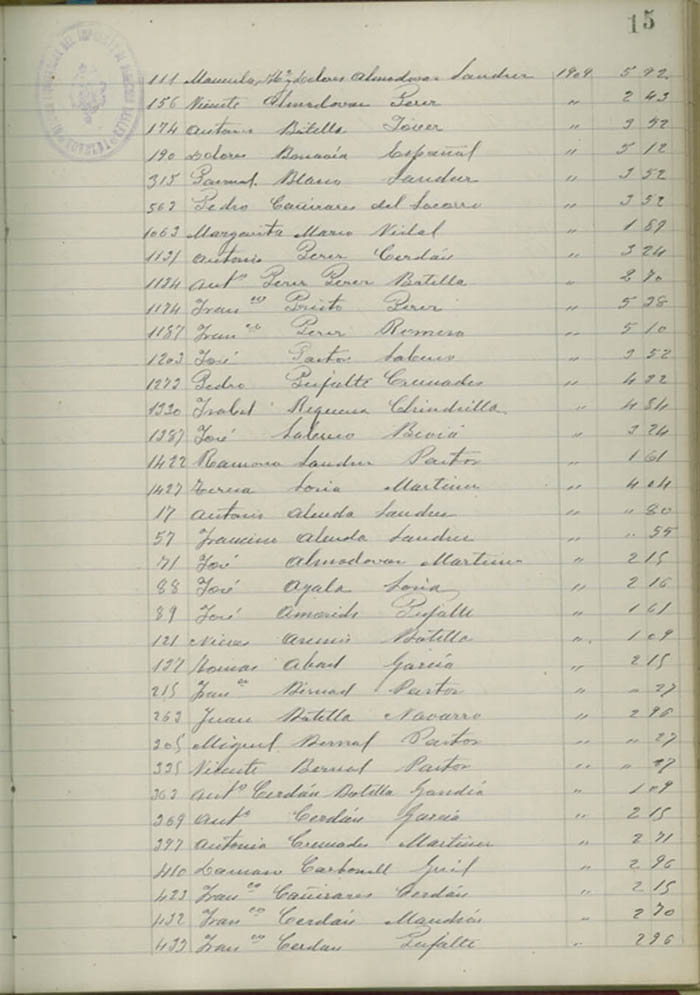 15
111 Manuela, Mª Dolores Almodovar Sander 1909 5 92
156 Vicente Almodovar Perez " 2 43
174 Antonio Botella Jover " 3 52
190 Dolores Española " 5 12
315 Pascual Blanco Sander " 3 52
563 Pedro Cañizares del Socorro " 3 52
1063 Margarita Marco Vidal " 1 89
1131 Antonio Perez Cerdán " 3 24
1134 Antº Perez Perez Botella " 2 70
1174 Franco Prieto Perez " 5 38
1187 Franco Perez Romero " 5 10
1203 José Pastor Salerno " 3 52
1273 Pedro Cremades " 4 32
1330 Isabel Requena Chinchilla " 4 54
1387 José Salerno Beviá " 3 24
1422 Ramona Sander Pastor " 1 61
1427 Teresa Soria Martinez " 4 04
17 Antonio Sander " " 80
57 Francisco Sander " " 55
71 José Almodovar Martinez " 2 15
88 José Ayala Soria " 2 16
89 José " 1 61
121 Nieves Botella " 1 09
137 Tomas Abad García " 2 15
215 Franco Bernad Pastor " " 27
263 Juan Botella Navarro " 2 96
305 Miguel Bernal Pastor " " 27
335 Vicente Bernal Pastor " " 27
363 Antº Cerdán Botella Gandía " 1 09
369 Antº Cerdán García " 2 15
397 Antonia Cremades Martinez " 2 71
410 Damaso Carbonell " 2 96
423 Franco Cañizares Cerdán " 2 15
432 Franco Cerdán " 2 70
433 Franco Cerdan " 2 96